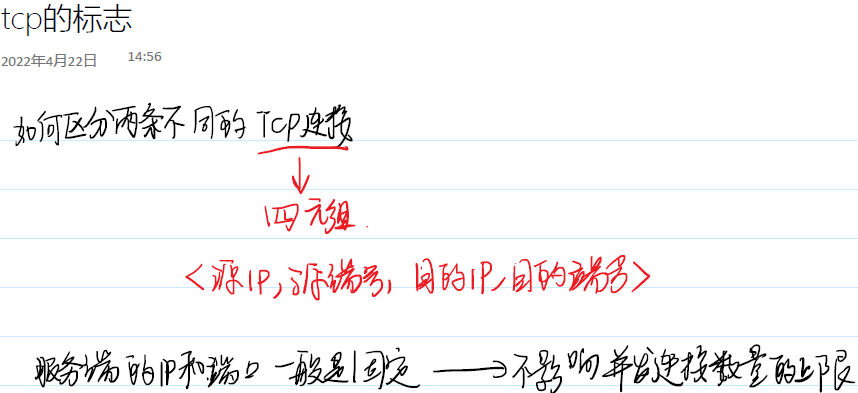 tcp的标志
2022年4月22日 14:56
如何区分两条不同的TCP连接
四元组.
<源IP,源端号,目的IP,目的端号>
服务端的IP和端口一般是固定 → 不影响并发连接数量的上限